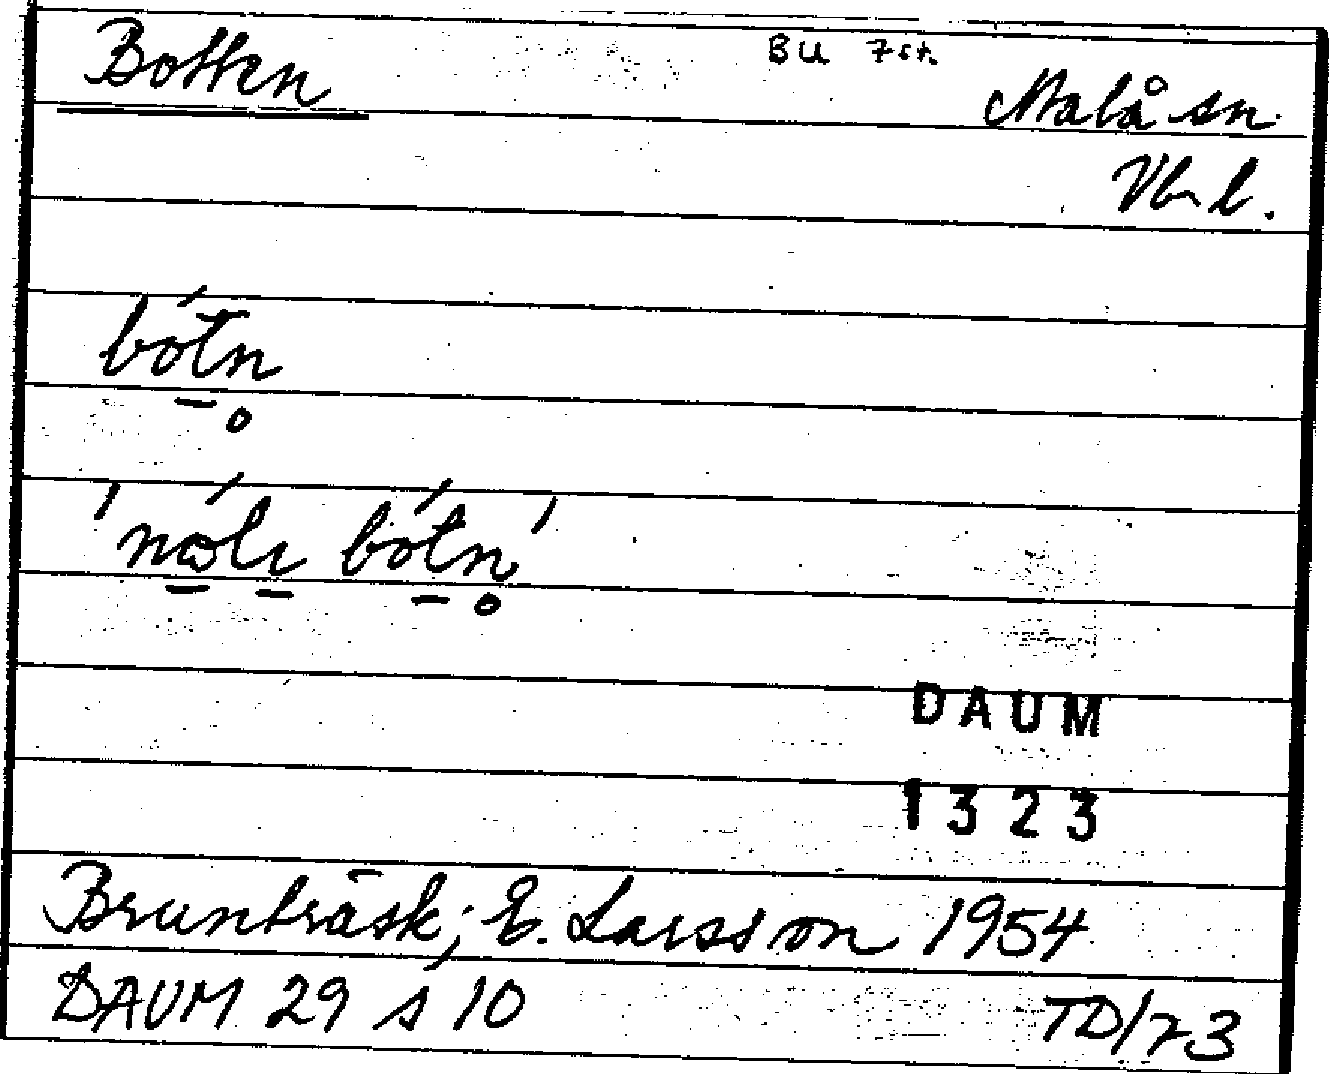 Botten
BU 7st.
Malå sn.
Vb. l.
bótn̥
DAUM
1323
Brunträsk; E. Larsson 1954
DAUM 29 s 10
TD/73